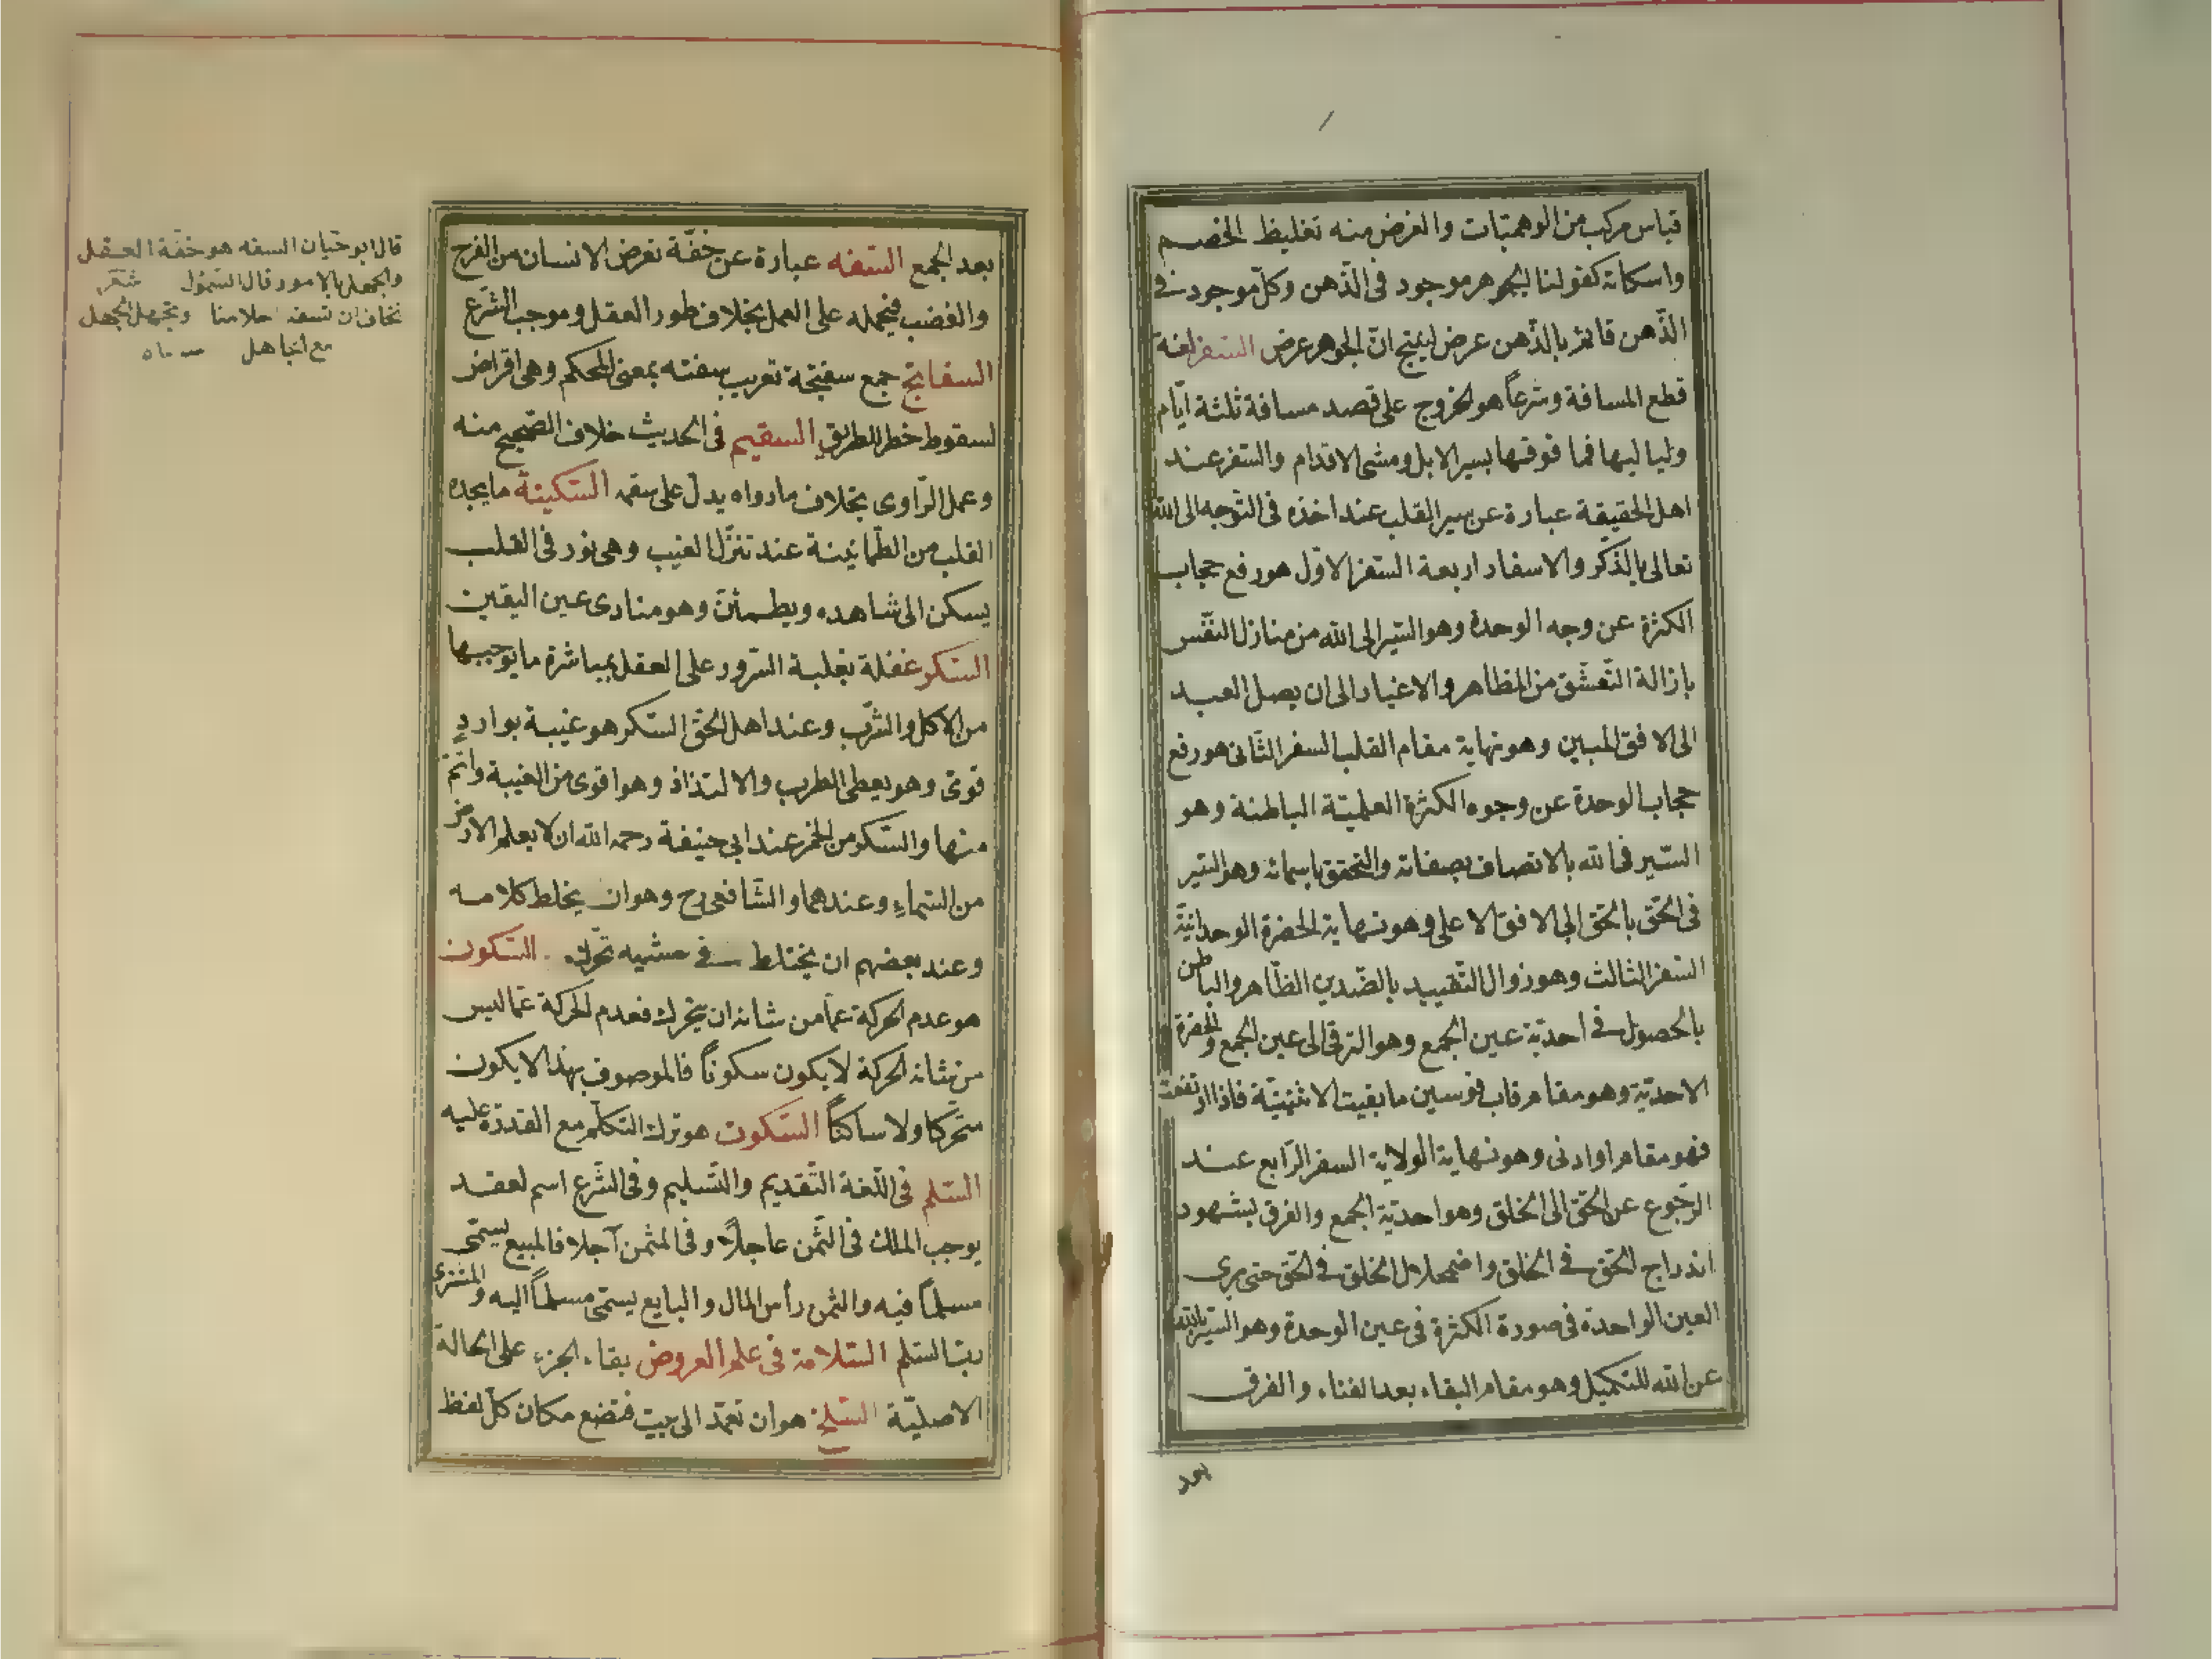 قياس مركب من الوهميّات والغرض منه تغليظ الخصم
واسكاته كقولنا الجوهر موجود فى الذّهن وكلّ موجود فى
الذّهن قائم بالذّهن عرض لينتج انّ الجوهر عرض السفر لغة
قطع المسافة وشرعاً هو الخروج على قصد مسافة ثلثة ايّام
ولياليها فما فوقها بسير الابل ومشى الاقدام والسّفر عند
اهل الحقيقة عبارة عن سير القلب عند اخذه فى التّوجه الى الله
تعالى بالذّكر والاسفار اربعة السّفر الاوّل هو رفع حجاب
الكثرة عن وجه الوحدة وهو السّير الى الله من منازل النّفس
بازالة التّعشّق من المظاهر والاغيار الى ان يصل العبد
الى الافق المبين وهو نهاية مقام القلب السفر الثّانى هو رفع
حجاب الوحدة عن وجوه الكثرة العلميّة الباطنة وهو
السّير فى الله بالاتصاف بصفاته والتحقق باسمائه وهو السّير
فى الحقّ بالحقّ الى الافق الاعلى وهو نهاية الحضرة الوحدانيّة
السّفر الثالث وهو زوال التّقييد بالضّدين الظّاهر والباطن
بالحصول فى احديّة عين الجمع وهو الترقّى الى عين الجمع والحضرة
الاحديّة وهو مقام قاب قوسين ما بقيت الاثنينيّة فاذا ارتفعت
فهو مقام او ادنى وهو نهاية الولاية السفر الرّابع عند
الرّجوع عن الحقّ الى الخلق وهو احديّة الجمع والفرق بشهود
اندراج الحقّ فى الخلق واضمحلال الخلق فى الحقّ حتى يرى
العين الواحدة فى صورة الكثرة فى عين الوحدة وهو السّير بالله
عن الله للتكميل وهو مقام البقاء بعد الفناء والفرق
بعد
بعد الجمع السّفه عبارة عن خفّة تعرض الانسان من الفرح
والغضب فيحمله على العمل بخلاف طور العقل وموجب الشّرع
السفاتج جمع سفتجة تعريب سفته بمعنى المحكم وهى اقراض
لسقوط خطر الطريق السقيم فى الحديث خلاف الصّحيح منه
وعمل الرّاوى بخلاف ما رواه يدلّ على سقمه السّكينة ما يجده
القلب من الطّمانينة عند تنزّل الغيب وهى نور فى القلب
يسكن الى شاهده ويطمئنّ وهو مبادى عين اليقين
السّكر غفلة بغلبة السّرور على العقل بمباشرة ما يوجبها
من الاكل والشّرب وعند اهل الحقّ السّكر هو غيبة بواردٍ
قوىّ وهو يعطى الطرب والالتذاذ وهو اقوى من الغيبة واتمّ
منها والسّكر من الخمر عند ابى حنيفة رحمه الله ان لا يعلم الارض
من السّماء وعندهما والشّافعى رح وهو ان يخلط كلامه
وعند بعضهم ان يختلط فى مشيه تحرّك السّكون
هو عدم الحركة عمّا من شانه ان يتحرك فعدم الحركة عمّا ليس
من شانه الحركة لا يكون سكوناً فالموصوف بهذا لا يكون
متحرّكا ولا ساكناً السّكوت هو ترك التكلّم مع القدرة عليه
السّلم فى اللّغة التّقديم والتّسليم وفى الشّرع اسم لعقد
يوجب الملك فى الثّمن عاجلاً وفى المثمن آجلا فالمبيع يسمّى
مسلماً فيه والثمن رأس المال والبايع يسمّى مسلماً اليه والمشترى
ربّ السّلم السّلامة فى علم العروض بقاء الجزء على الحالة
الاصليّة السّلخ هو ان تعمّد الى بيت فتضع مكان كلّ لفظ
قال ابو حيّان السفه هو خفّة العقل
والجهل بالامور قال السّموْل شعر
نخاف ان تسفه احلامنا ونجهل الجهل
مع الجاهل